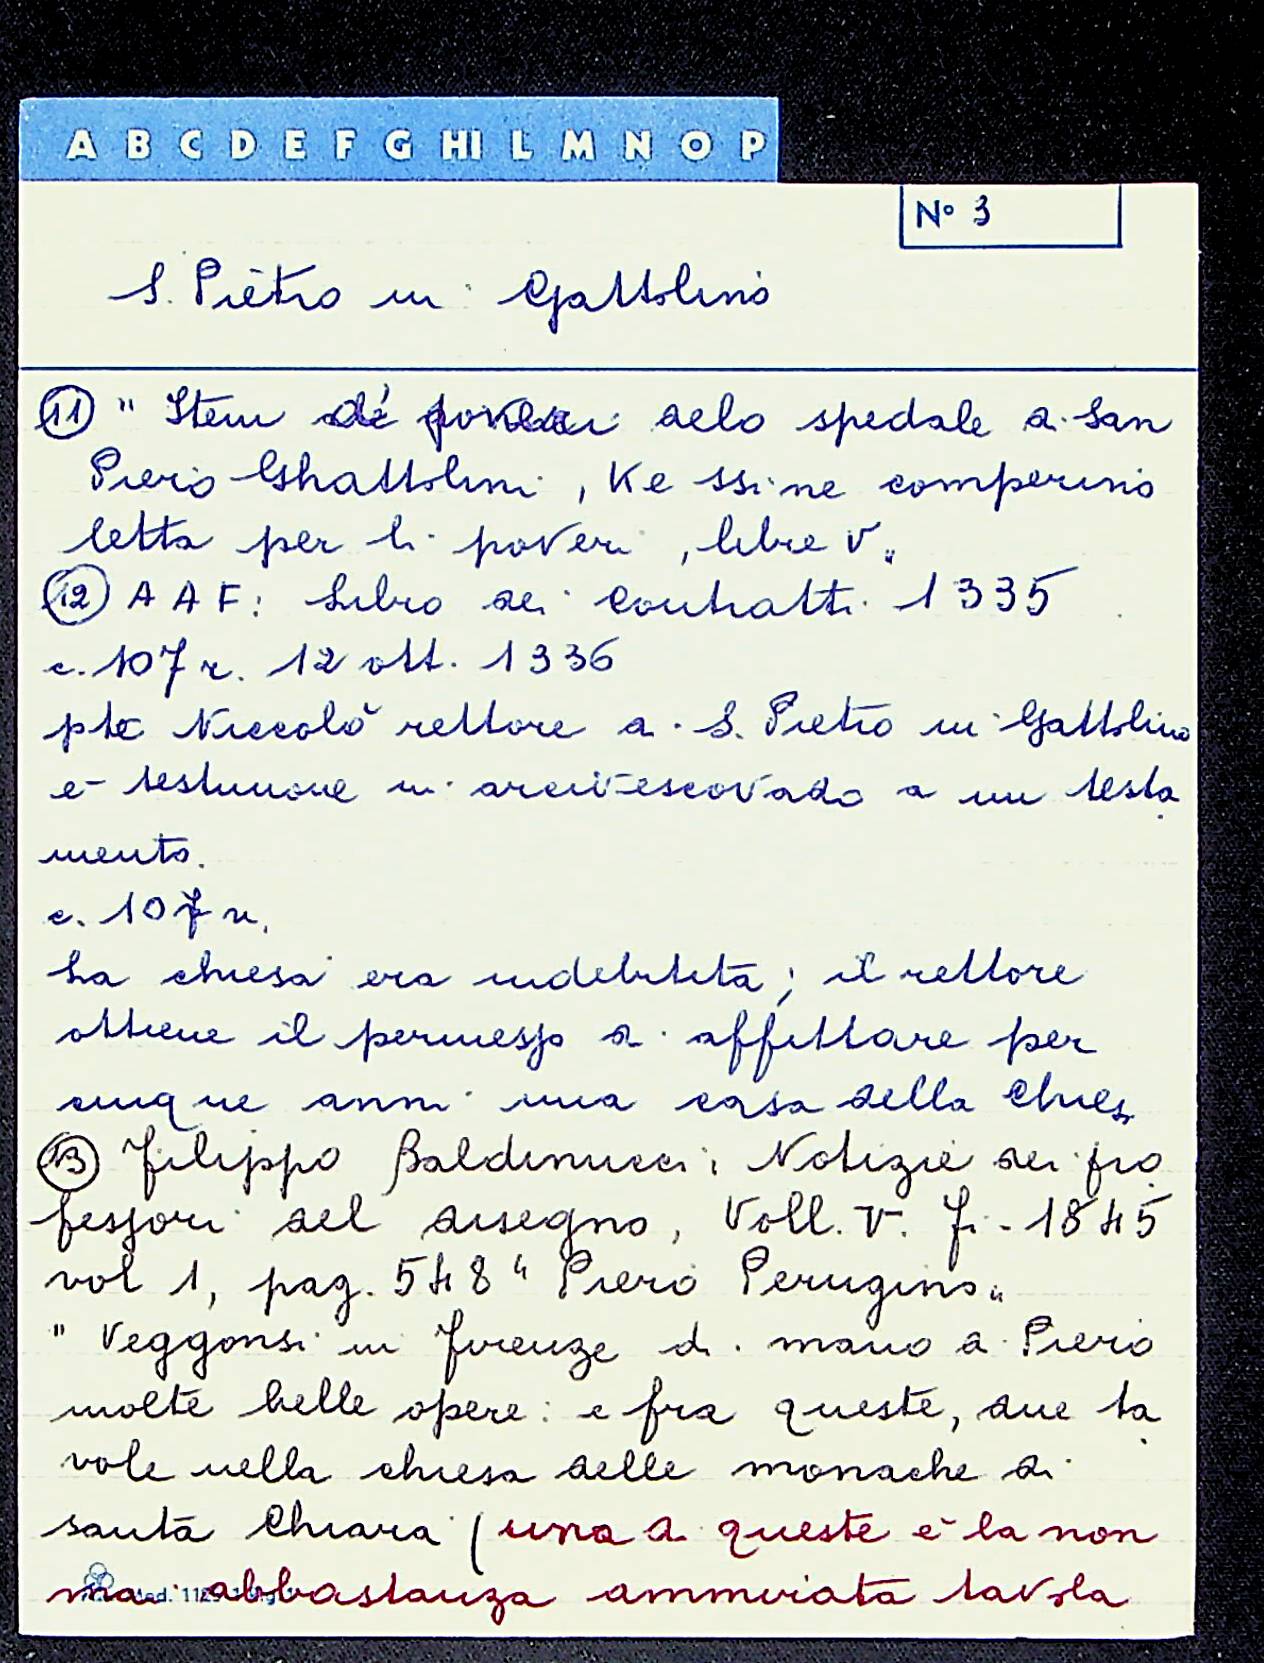 A B C D E F G HI L M N O P
N° 3
S. Pietro in Gattolino
11 " Item de' poveri delo spedale di San
Piero Ghattolini, Ke ssi ne comperino
letta per li poveri, libre V"
12 A A F: Libro dei contratti 1335
c. 107 r. 12 ott. 1336
pte Niccolò rettore di S. Pietro in Gattolino
è testimone in arcivescovado a un testa
mento.
c. 107
La chiesa era indebitata; il rettore
ottiene il permesso di affittare per
cinque anni una casa della chies
13 Filippo Baldinucci: Notizie dei pro
fessori del disegno, Voll. V. Fi - 1845
vol 1, pag. 548 " Piero Perugino"
" Veggonsi in Firenze di mano di Piero
molte belle opere: e fra queste, due ta
vole nella chiesa delle monache di
santa Chiara ( una di queste è la non
mai abbastanza ammirata tavola